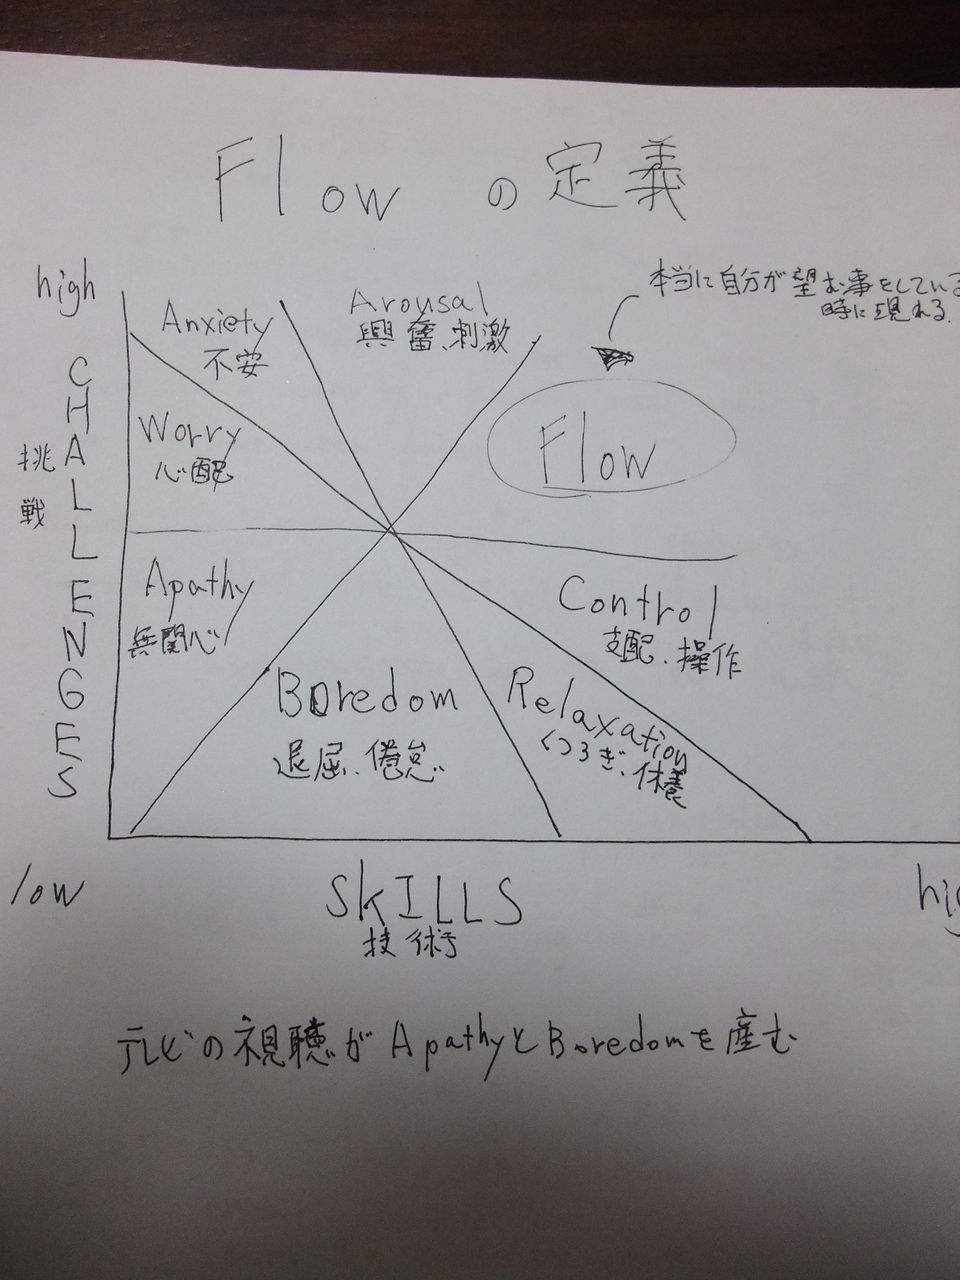 Flow の定義
high
本当に自分が望む事をしている
時に現れる.
Anxiety
不安
Arousal
興奮、刺激
CHALLENGES
挑戦
Worry
心配
Flow
Apathy
無関心
Control
支配、操作
Boredom
退屈、倦怠
Relaxation
くつろぎ、休養
low
SkILLS
技術
hig
テレビの視聴がApathyとBoredomを産む